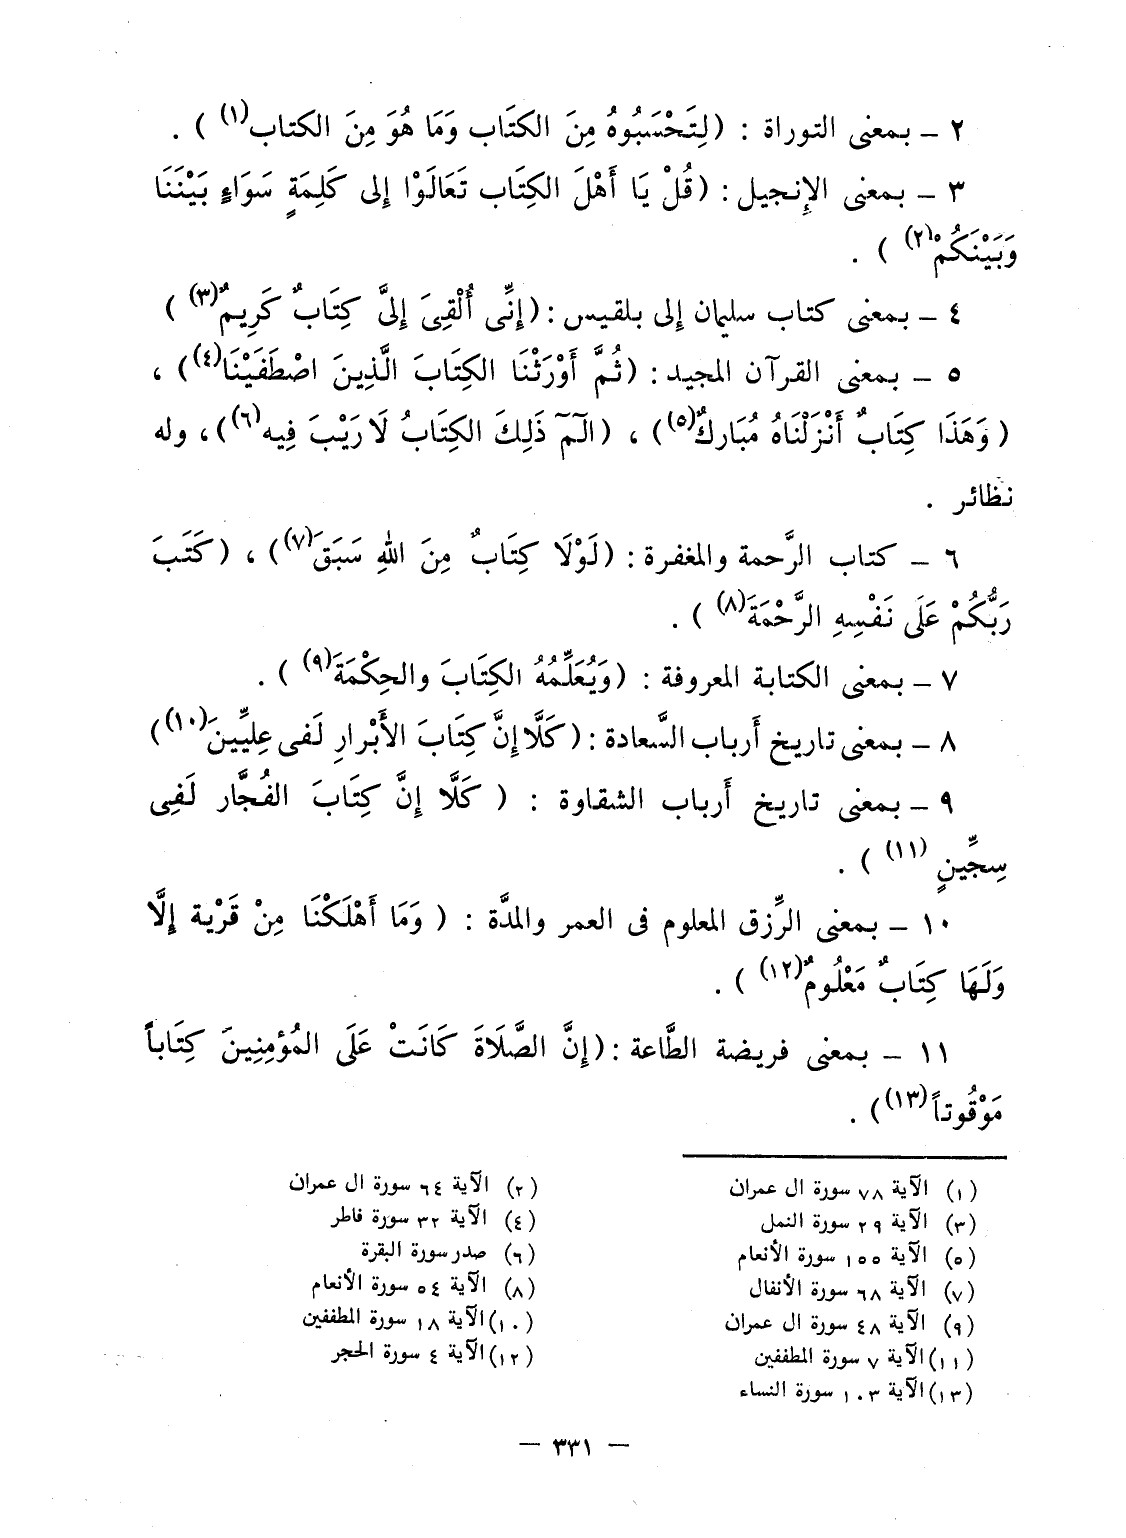 ٢ ـ بمعنى التوراة : (لِتَحْسَبُوهُ مِنَ الكتَاب وَمَا هُوَ مِنَ الكتاب(١) ) .
٣ ـ بمعنى الإِنجيل : (قُلْ يَا أَهْلَ الكِتَاب تَعَالَوْا إِلى كَلِمَةٍ سَوَاءٍ بَيْنَنَا
وَبَيْنَكُمْ(٢) ) .
٤ ـ بمعنى كتاب سليمان إلى بلقيس : (إِنِّى أُلْقِىَ إِلىَّ كِتَابٌ كَرِيمٌ(٣) )
٥ ـ بمعنى القرآن المجيد : (ثُمَّ أَوْرَثْنَا الكِتَابَ الَّذِينَ اصْطَفَيْنَا(٤)) ،
(وَهَذَا كِتَابٌ أَنْزَلْنَاهُ مُبَاركٌ(٥)) ، (الٓمٓ ذَلِكَ الكِتَابُ لَا رَيْبَ فِيه(٦)) ، وله
نظائر .
٦ ـ كتاب الرَّحمة والمغفرة : (لَوْلَا كِتَابٌ مِنَ اللهِ سَبَقَ(٧)) ، (كَتَبَ
رَبُّكُمْ عَلَى نَفْسِهِ الرَّحْمَةَ(٨) ) .
٧ ـ بمعنى الكتابة المعروفة : (وَيُعَلِّمُهُ الكِتَابَ والحِكْمَةَ(٩) ) .
٨ ـ بمعنى تاريخ أَرباب السَّعادة : (كَلَّا إِنَّ كِتَابَ الأَبْرارِ لَفى عِليِّينَ(١٠))
٩ ـ بمعنى تاريخ أَرباب الشقاوة : ( كَلَّا إِنَّ كِتَابَ الفُجَّار لَفِى
سِجِّينٍ (١١) ) .
١٠ ـ بمعنى الرِّزق المعلوم فى العمر والمدَّة : ( وَمَا أَهْلَكْنَا مِنْ قَرْية إِلَّا
وَلَهَا كِتَابٌ مَعْلُومٌ(١٢) ) .
١١ ـ بمعنى فريضة الطَّاعة : (إِنَّ الصَّلَاةَ كَانَتْ عَلَى المُؤمِنِينَ كِتَاباً
مَوْقُوتاً(١٣)) .
(١) الآية ٧٨ سورة ال عمران
(٢) الآية ٦٤ سورة ال عمران
(٣) الآية ٢٩ سورة النمل
(٤) الآية ٣٢ سورة فاطر
(٥) الآية ١٥٥ سورة الأنعام
(٦) صدر سورة البقرة
(٧) الآية ٦٨ سورة الأنفال
(٨) الآية ٥٤ سورة الأنعام
(٩) الآية ٤٨ سورة ال عمران
(١٠) الآية ١٨ سورة المطففين
(١١) الآية ٧ سورة المطففين
(١٢) الآية ٤ سورة الحجر
(١٣) الآية ١٠٣ سورة النساء
— ٣٣١ —